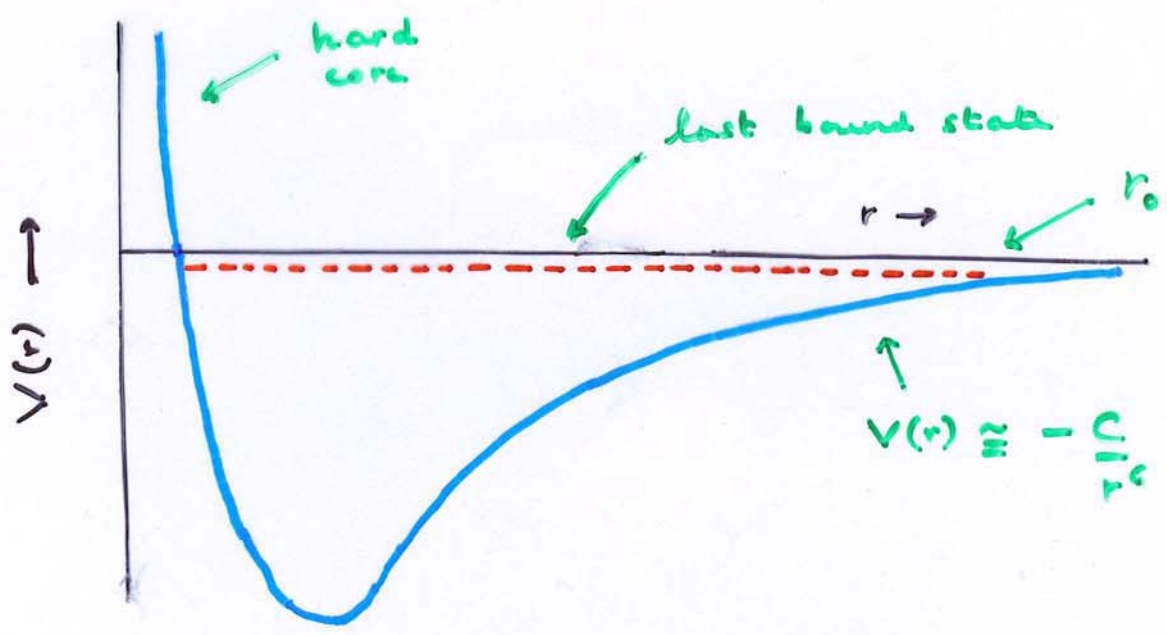 hard
core
last bound state
r →
r₀
V(r) →
V(r) ≅ - C
r⁶